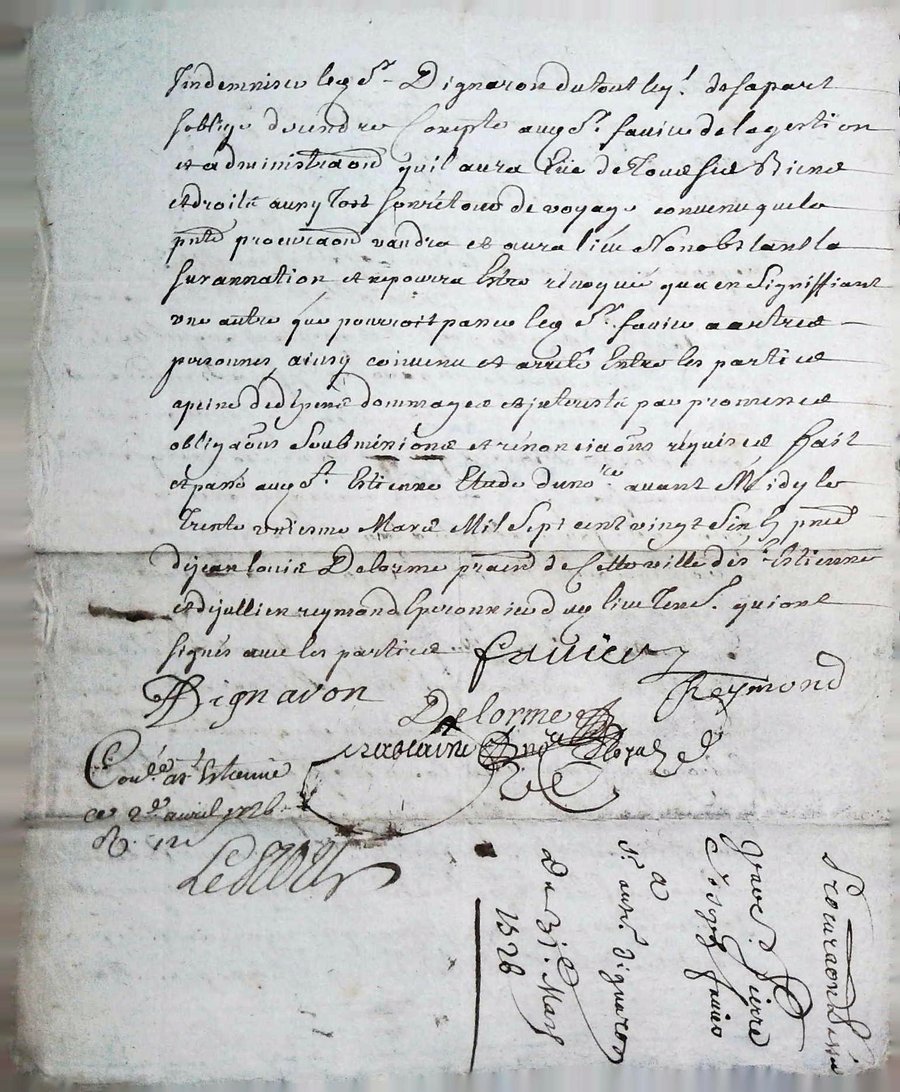 Jndemniser led Sr. Dignaron du tout led. de sa part
soblige de rendre Compte aud Sr. favier de la gestion
et administraon quil aura Eüe de Tous sies Biens
et droits aussy Tost son rétour de voyage convenu que la
pnte procuraon vaudra et aura lieu Nonobstant la
surannation et ne pourra Estre révoquée qua en Signiffiant
vne autre que pourroit passer led Sr. favier a autres
personnes, ainsy convenu et arrété Entre les parties
a peine de dépens dommages et jnterests par promesses
obligaons Soubmissions et rénonciaons réquises fait
et passé aud St. Estienne Etude du nore avant Midy le
Trente vniesme Mars Mil Sept cent vingt Six En pnce
de jean louis Delorme praticien de Cette ville de St. Estienne
et de jullien reymond Eperonnier dud lieu Tes. qui ont
signés avec les parties favier
Dignaron Reymond
Delorme
Conlé. a St. Estienne
ce 2e. avril 1726
R. 12 s
Procuraon
grave. Pierre
favier
a
Sr. anth. dignaron
Du 31e. Mars
1726